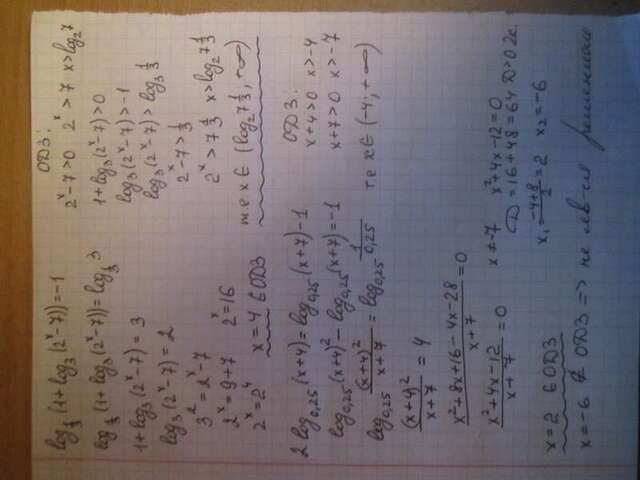 log_{1/3}(1+log₃(2ˣ-7))=-1
log_{1/3}(1+log₃(2ˣ-7))=log_{1/3}3
1+log₃(2ˣ-7)=3
log₃(2ˣ-7)=2
3²=2ˣ-7
2ˣ=9+7 2ˣ=16
2ˣ=2⁴ x=4 ∈ОДЗ
ОДЗ:
2ˣ-7>0 2ˣ>7 x>log₂7
1+log₃(2ˣ-7)>0
log₃(2ˣ-7)>-1
log₃(2ˣ-7)>log₃ 1/3
2ˣ-7>1/3
2ˣ>7 1/3 x>log₂7 1/3
т.е x∈(log₂7 1/3;+∞)
2log₀,₂₅(x+4)=log₀,₂₅(x+7)-1
log₀,₂₅(x+4)²-log₀,₂₅(x+7)=-1
log₀,₂₅ (x+4)²/(x+7) = log₀,₂₅ 1/0,25
(x+4)²/(x+7) = 4
(x²+8x+16-4x-28)/(x+7) =0
(x²+4x-12)/(x+7) =0 x≠-7
ОДЗ:
x+4>0 x>-4
x+7>0 x>-7
т.е x∈(-4;+∞)
x²+4x-12=0
D=16+48=64 D>0 2к.
x₁=(-4+8)/2=2 x₂=-6
x=2 ∈ОДЗ
x=-6 ∉ ОДЗ => не яв-ся решением